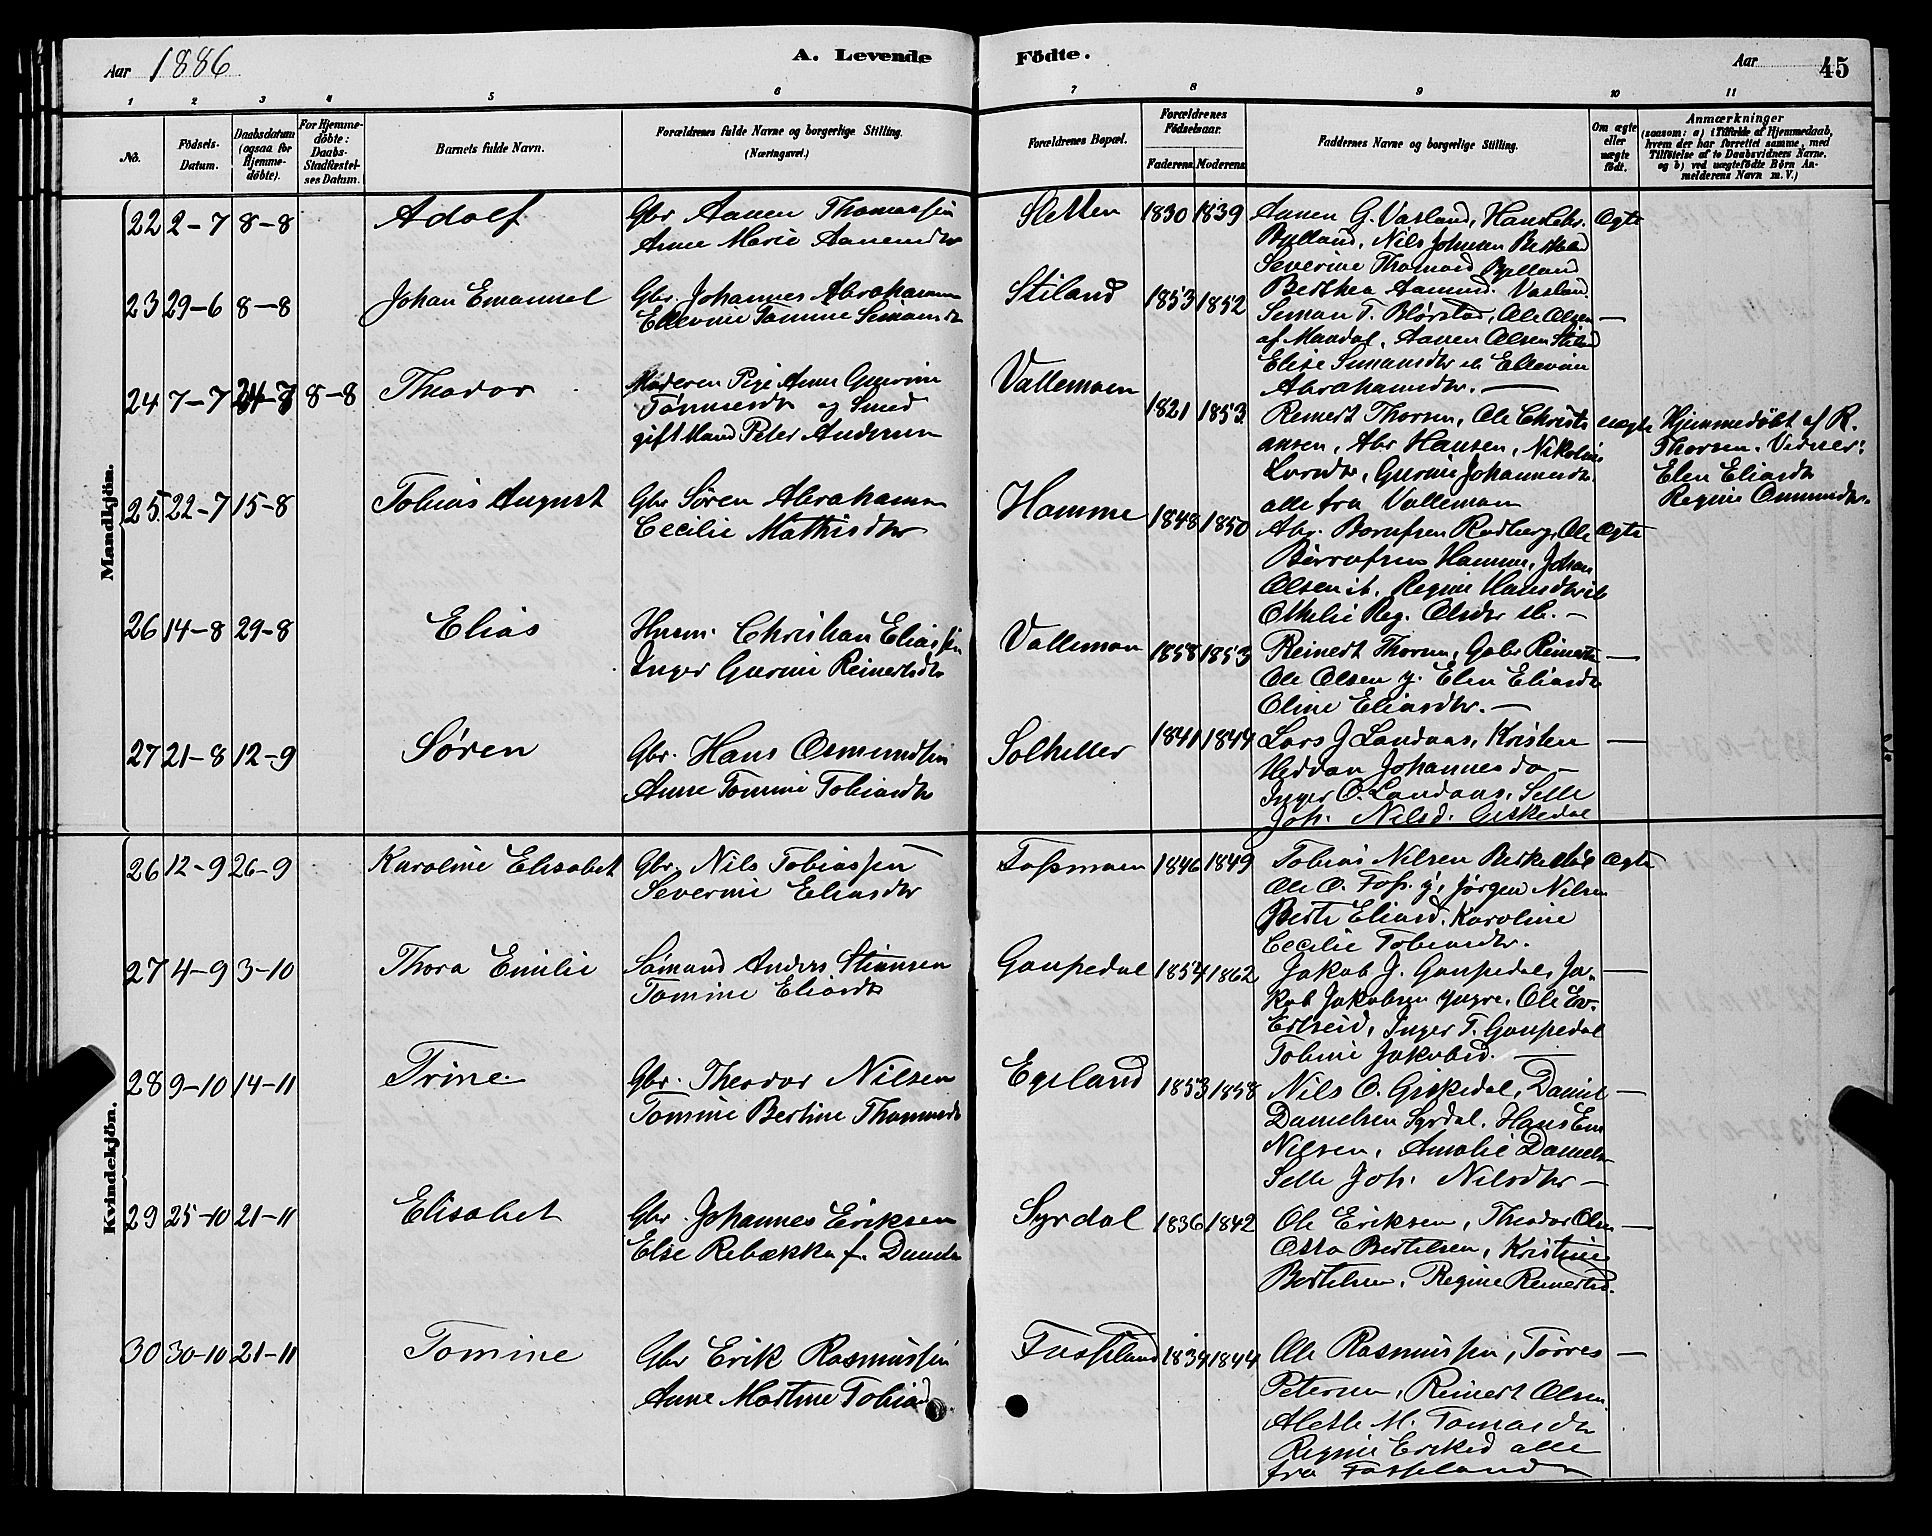 Aar 1886
A. Levende Födte.
Aar
45
1 2 3 4 5 6 7 8 9 10 11
No.
Födsels-
Datum.
Daabsdatum
(ogsaa for
Hjemme-
döbte).
For Hjemme-
döbte:
Daabs-
Stadfæstel-
ses Datum.
Barnets fulde Navn.
Forældrenes fulde Navne og borgerlige Stilling.
(Næringsvei.)
Forældrenes Bopæl.
Forældrenes
Födselsaar.
Faderens Moderens
Faddernes Navne og borgerlige Stilling.
Om ægte
eller
uægte
födt.
Anmærkninger
(saasom: a) i Tilfælde af Hjemmedaab,
hvem der har forrettet samme, med
Tilföielse af to Daabsvidners Navne,
og b) ved uægtefödte Börn An-
melderens Navn m. V.)
Mandkjön.
22 2-7 8-8 Adolf
Gbr Aanen Thomassen
Anne Marie Aanensdtr
Sletten 1830 1839
Aanen G. Vasland, Hans
Bylland, Nils Johnsen
Severine Thomasd Bylland
Berthea Aanensd. Vasland
Ægte
23 29-6 8-8 Johan Emanuel
Gbr. Johannes Abrahamsen
Ellevine Tomine Simonsdtr
Stiland 1853 1852
Simon T. Blörstad, Ole Olsen
af Mandal, Aanen Olsen Stiland
Elise Simonsdtr Ellevine
Abrahamsdtr. —
—
24 7-7 24-7 8-8 Theodor
Moderen Pige Anne Gurine
Tönnesdtr og Smed
gift Mand Peter Andersen
Vallemoen 1821 1853
Reinert Thorsen, Ole Christi
ansen, Abr Hansen, Nikoline
Larsdtr, Gurine Johannesdtr
alle fra Vallemoen
uægte
Hjemmedöbt af R.
Thorsen. Vidner:
Elen Eliasdtr
Regine Osmundsdtr.
25 22-7 15-8 Tobias August
Gbr Sören Abrahamsen
Cecilie Mathisdtr
Homme 1848 1850
Abr. Rodberg, Ole
Homme, Johan
Olsen ib. Regine Hansdtr ib
Othelie Reg. Olsdtr ib. —
Ægte
26 14-8 29-8 Elias
Husm. Christian Eliassen
Inger Gurine Reinertsdtr
Vallemoen 1858 1853
Reinert Thorsen, Gabr Reinertsen
Ole Olsen y. Elen Eliasdtr
Oline Eliasdtr. —
—
27 21-8 12-9 Sören
Gbr. Hans Osmundsen
Anne Tomine Tobiasdtr
Solheller 1841 1844
Lars J Landaas, Kristen
Heddan Johannes do —
Inger O. Landaas, Selle
Joh. Nilsd. Giskedal
—
Kvindekjön.
26 12-9 26-9 Karoline Elisabet
Gbr. Nils Tobiassen
Severine Eliasdtr
Fossmoen 1846 1849
Tobias Nilsen
Ole O. Foss. y, Jörgen Nilsen
Berte Eliasd. Karoline
Cecilie Tobiasdtr.
Ægte
27 4-9 3-10 Thora Emilie
Sömand Anders Stiansen
Tomine Eliasdtr
Gaupedal 1854 1862
Jakob J. Gaupedal, Ja-
kob Jakobsen yngre, Ole Ev.
Ertseid, Inger T. Gaupedal
Tobine Jakobsd. —
—
28 9-10 14-11 Trine
Gbr. Theodor Nilsen
Tomine Bertine Thomasdtr
Egeland 1853 1858
Nils O. Giskedal, Daniel
Danielsen Syrdal, Hans Em
Nilsen, Amalie Danielsd
Selle Joh. Nilsdtr —
—
29 25-10 21-11 Elisabet
Gbr. Johannes Eriksen
Else Rebækka f. Danielsd
Syrdal 1836 1842
Ole Eriksen, Theodor Olsen
Osta Bertelsen, Kristine
Bertelsen, Regine Reinertsd.
—
30 30-10 21-11 Tomine
Gbr Erik Rasmussen
Anne Martine Tobiasd
Fasseland 1834 1844
Ole Rasmussen, Törres
Petersen, Reinert Olsen
Aletle M. Tomasdtr
Regine Eriksd alle
fra Fasseland
—